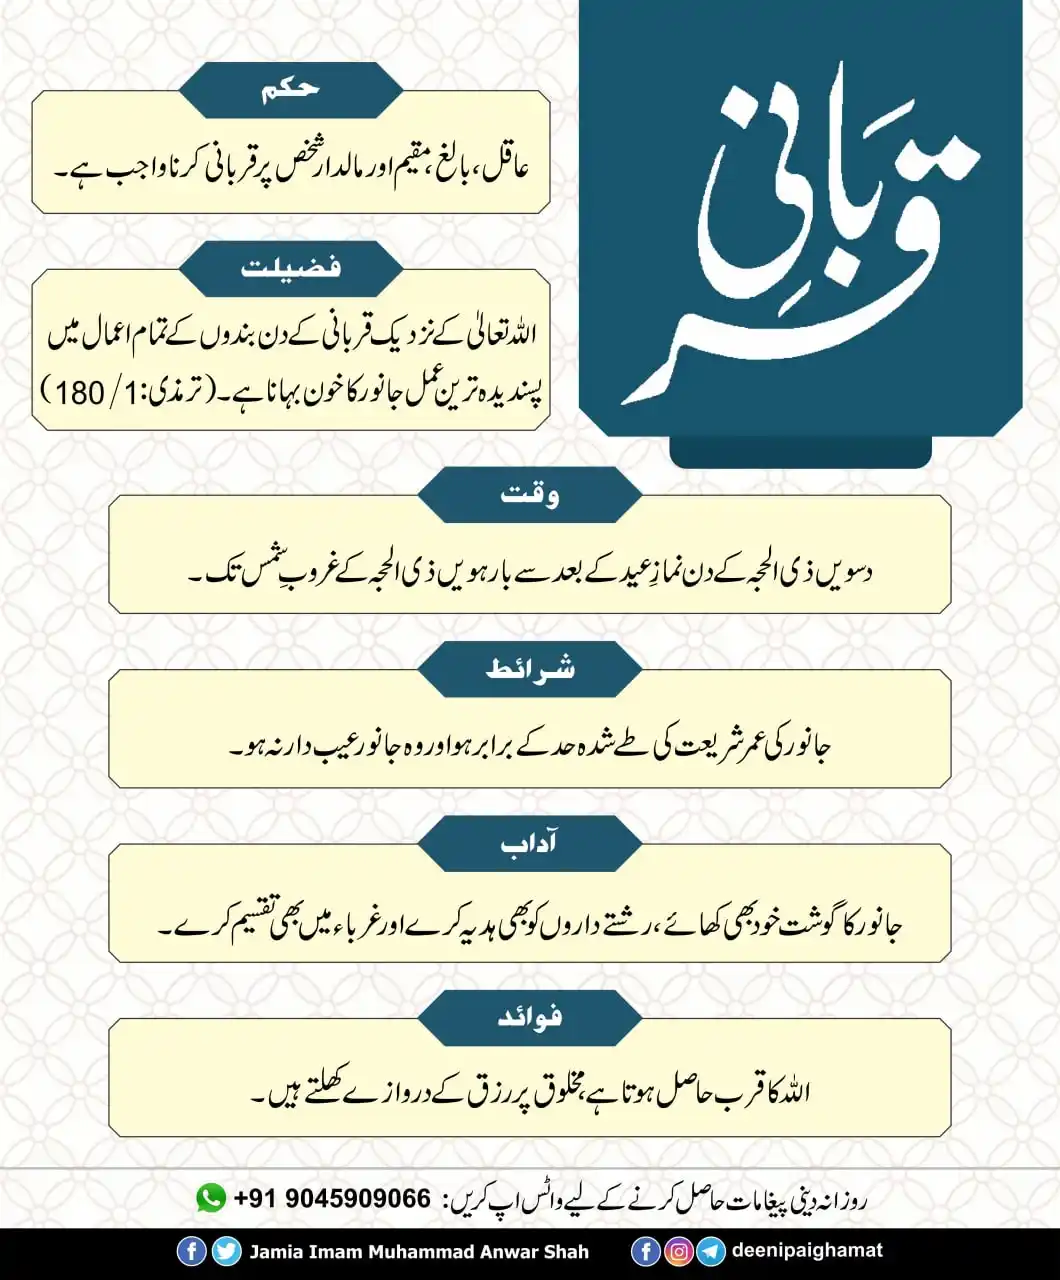 قربانی
حکم
عاقل، بالغ، مقیم اور مالدار شخص پر قربانی کرنا واجب ہے۔
فضیلت
اللہ تعالیٰ کے نزدیک قربانی کے دن بندوں کے تمام اعمال میں
پسندیدہ ترین عمل جانور کا خون بہانا ہے۔ (ترمذی: 1/ 180)
وقت
دسویں ذی الحجہ کے دن نمازِ عید کے بعد سے بارہویں ذی الحجہ کے غروبِ شمس تک۔
شرائط
جانور کی عمر شریعت کی طے شدہ حد کے برابر ہو اور وہ جانور عیب دار نہ ہو۔
آداب
جانور کا گوشت خود بھی کھائے، رشتے داروں کو بھی ہدیہ کرے اور غرباء میں بھی تقسیم کرے۔
فوائد
اللہ کا قرب حاصل ہوتا ہے، مخلوق پر رزق کے دروازے کھلتے ہیں۔
روزانہ دینی پیغامات حاصل کرنے کے لیے واٹس اپ کریں: +91 9045909066
Jamia Imam Muhammad Anwar Shah deenipaighamat